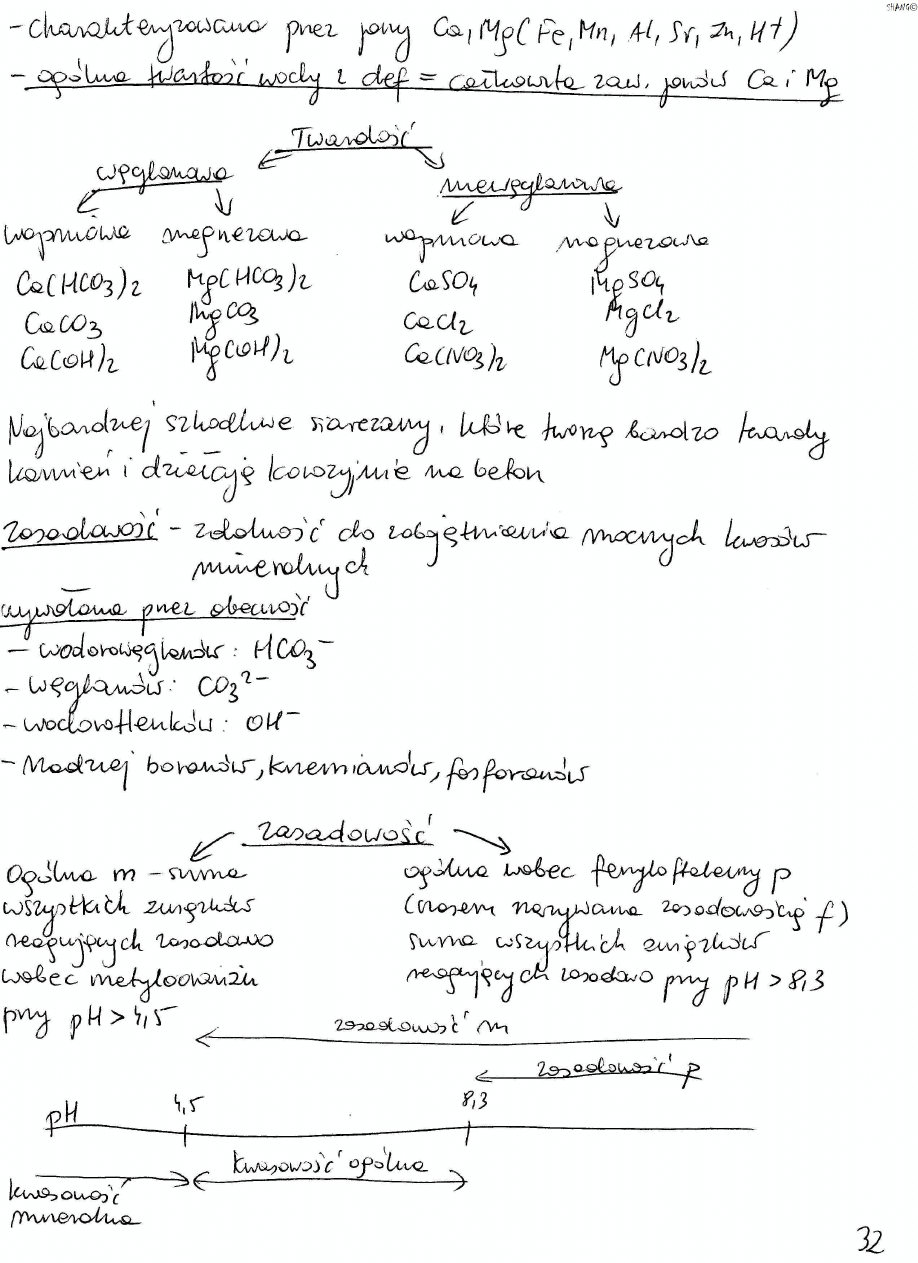 SHANG©
- charakteryzowana przez jony Ca, Mg (Fe, Mn, Al, Sr, Zn, H+)
- ogólna twardość wody z def = całkowita zaw. jonów Ca i Mg
Twardość
węglanowa niewęglanowa
wapniowa magnezowa wapniowa magnezowa
Ca(HCO3)2 Mg(HCO3)2 CaSO4 MgSO4
CaCO3 MgCO3 CaCl2 MgCl2
Ca(OH)2 Mg(OH)2 Ca(NO3)2 Mg(NO3)2
Najbardziej szkodliwe siarczany, które tworzą bardzo twardy
kamień i działają korozyjnie na beton
Zasadowość - zdolność do zobojętniania mocnych kwasów
mineralnych
wywołana przez obecność
- wodorowęglanów: HCO3-
- węglanów: CO3 2-
- wodorotlenków: OH-
- rzadziej boranów, krzemianów, fosforanów
zasadowość
Ogólna m - suma
wszystkich związków
reagujących zasadowo
wobec metylooranżu
przy pH > 4,5
ogólna wobec fenyloftaleiny p
(czasem nazywana zasadowością f)
suma wszystkich związków
reagujących zasadowo przy pH > 8,3
zasadowość m
zasadowość p
pH 4,5 8,3
kwasowość ogólna
kwasowość
mineralna
32